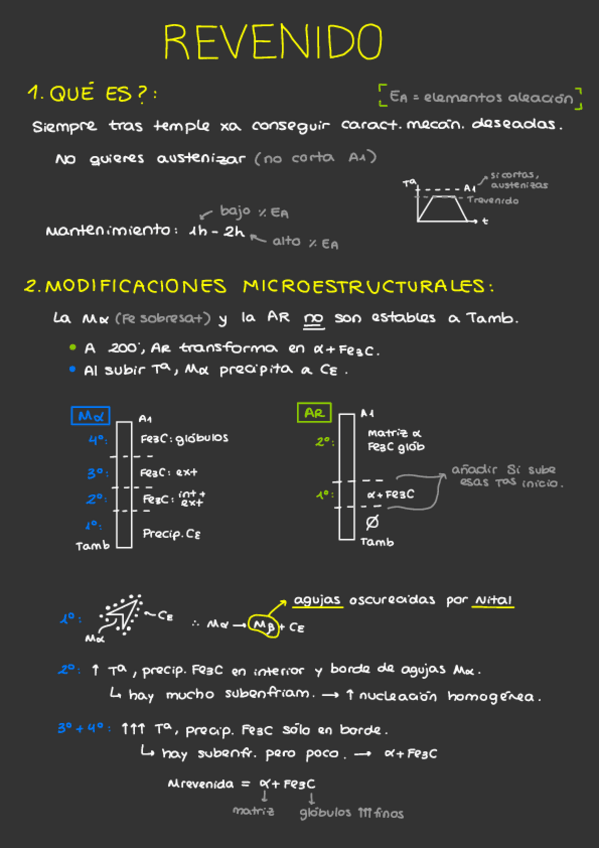 REVENIDO
1. QUÉ ES?:
[EA = elementos aleación]
Siempre tras temple xa conseguir caract. mecán. deseadas.
No quieres austenizar (no corta A1)
si cortas,
austenizas
Tª
A1
Trevenido
t
bajo % EA
Mantenimiento: 1h - 2h
alto % EA
2. MODIFICACIONES MICROESTRUCTURALES:
La Mα (Fe sobresat) y la AR no son estables a Tamb.
• A 200°, AR transforma en α + Fe3C.
• Al subir Tª, Mα precipita a Cε.
Mα
A1
4º: Fe3C: glóbulos
3º: Fe3C: ext
2º: Fe3C: int + ext
1º: Precip. Cε
Tamb
AR
A1
2º: Matriz α
Fe3C glób
1º: α + Fe3C
Ø
Tamb
añadir Si sube
esas Tas inicio.
agujas oscurecidas por Nital
1º: Mα Cε ∴ Mα → Mβ + Cε
2º: ↑ Tª, precip. Fe3C en interior y borde de agujas Mα.
↳ hay mucho subenfriam. → ↑ nucleación homogénea.
3º + 4º: ↑↑↑ Tª, precip. Fe3C sólo en borde.
↳ hay subenfr. pero poco. → α + Fe3C
Mrevenida = α + Fe3C
matriz glóbulos ↑↑↑ finos